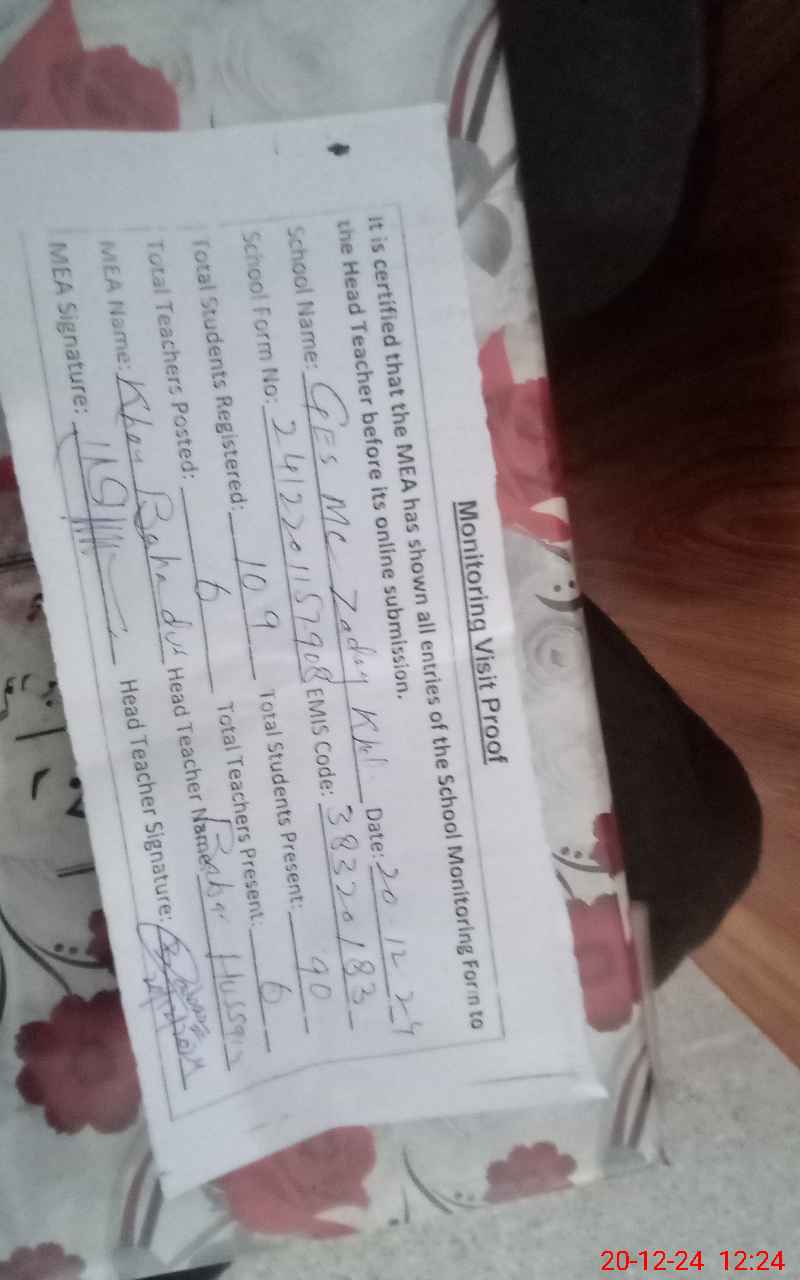 Monitoring Visit Proof
It is certified that the MEA has shown all entries of the School Monitoring Form to
the Head Teacher before its online submission.
School Name: GES MC Date: 20 12 24
School Form No: 2412201157908 EMIS Code: 38320183
Total Students Registered: 109 Total Students Present: 90
Total Teachers Posted: 6 Total Teachers Present: 6
MEA Name: Khan Bahadur Head Teacher Name: Hussain
MEA Signature: Head Teacher Signature:
20-12-24 12:24